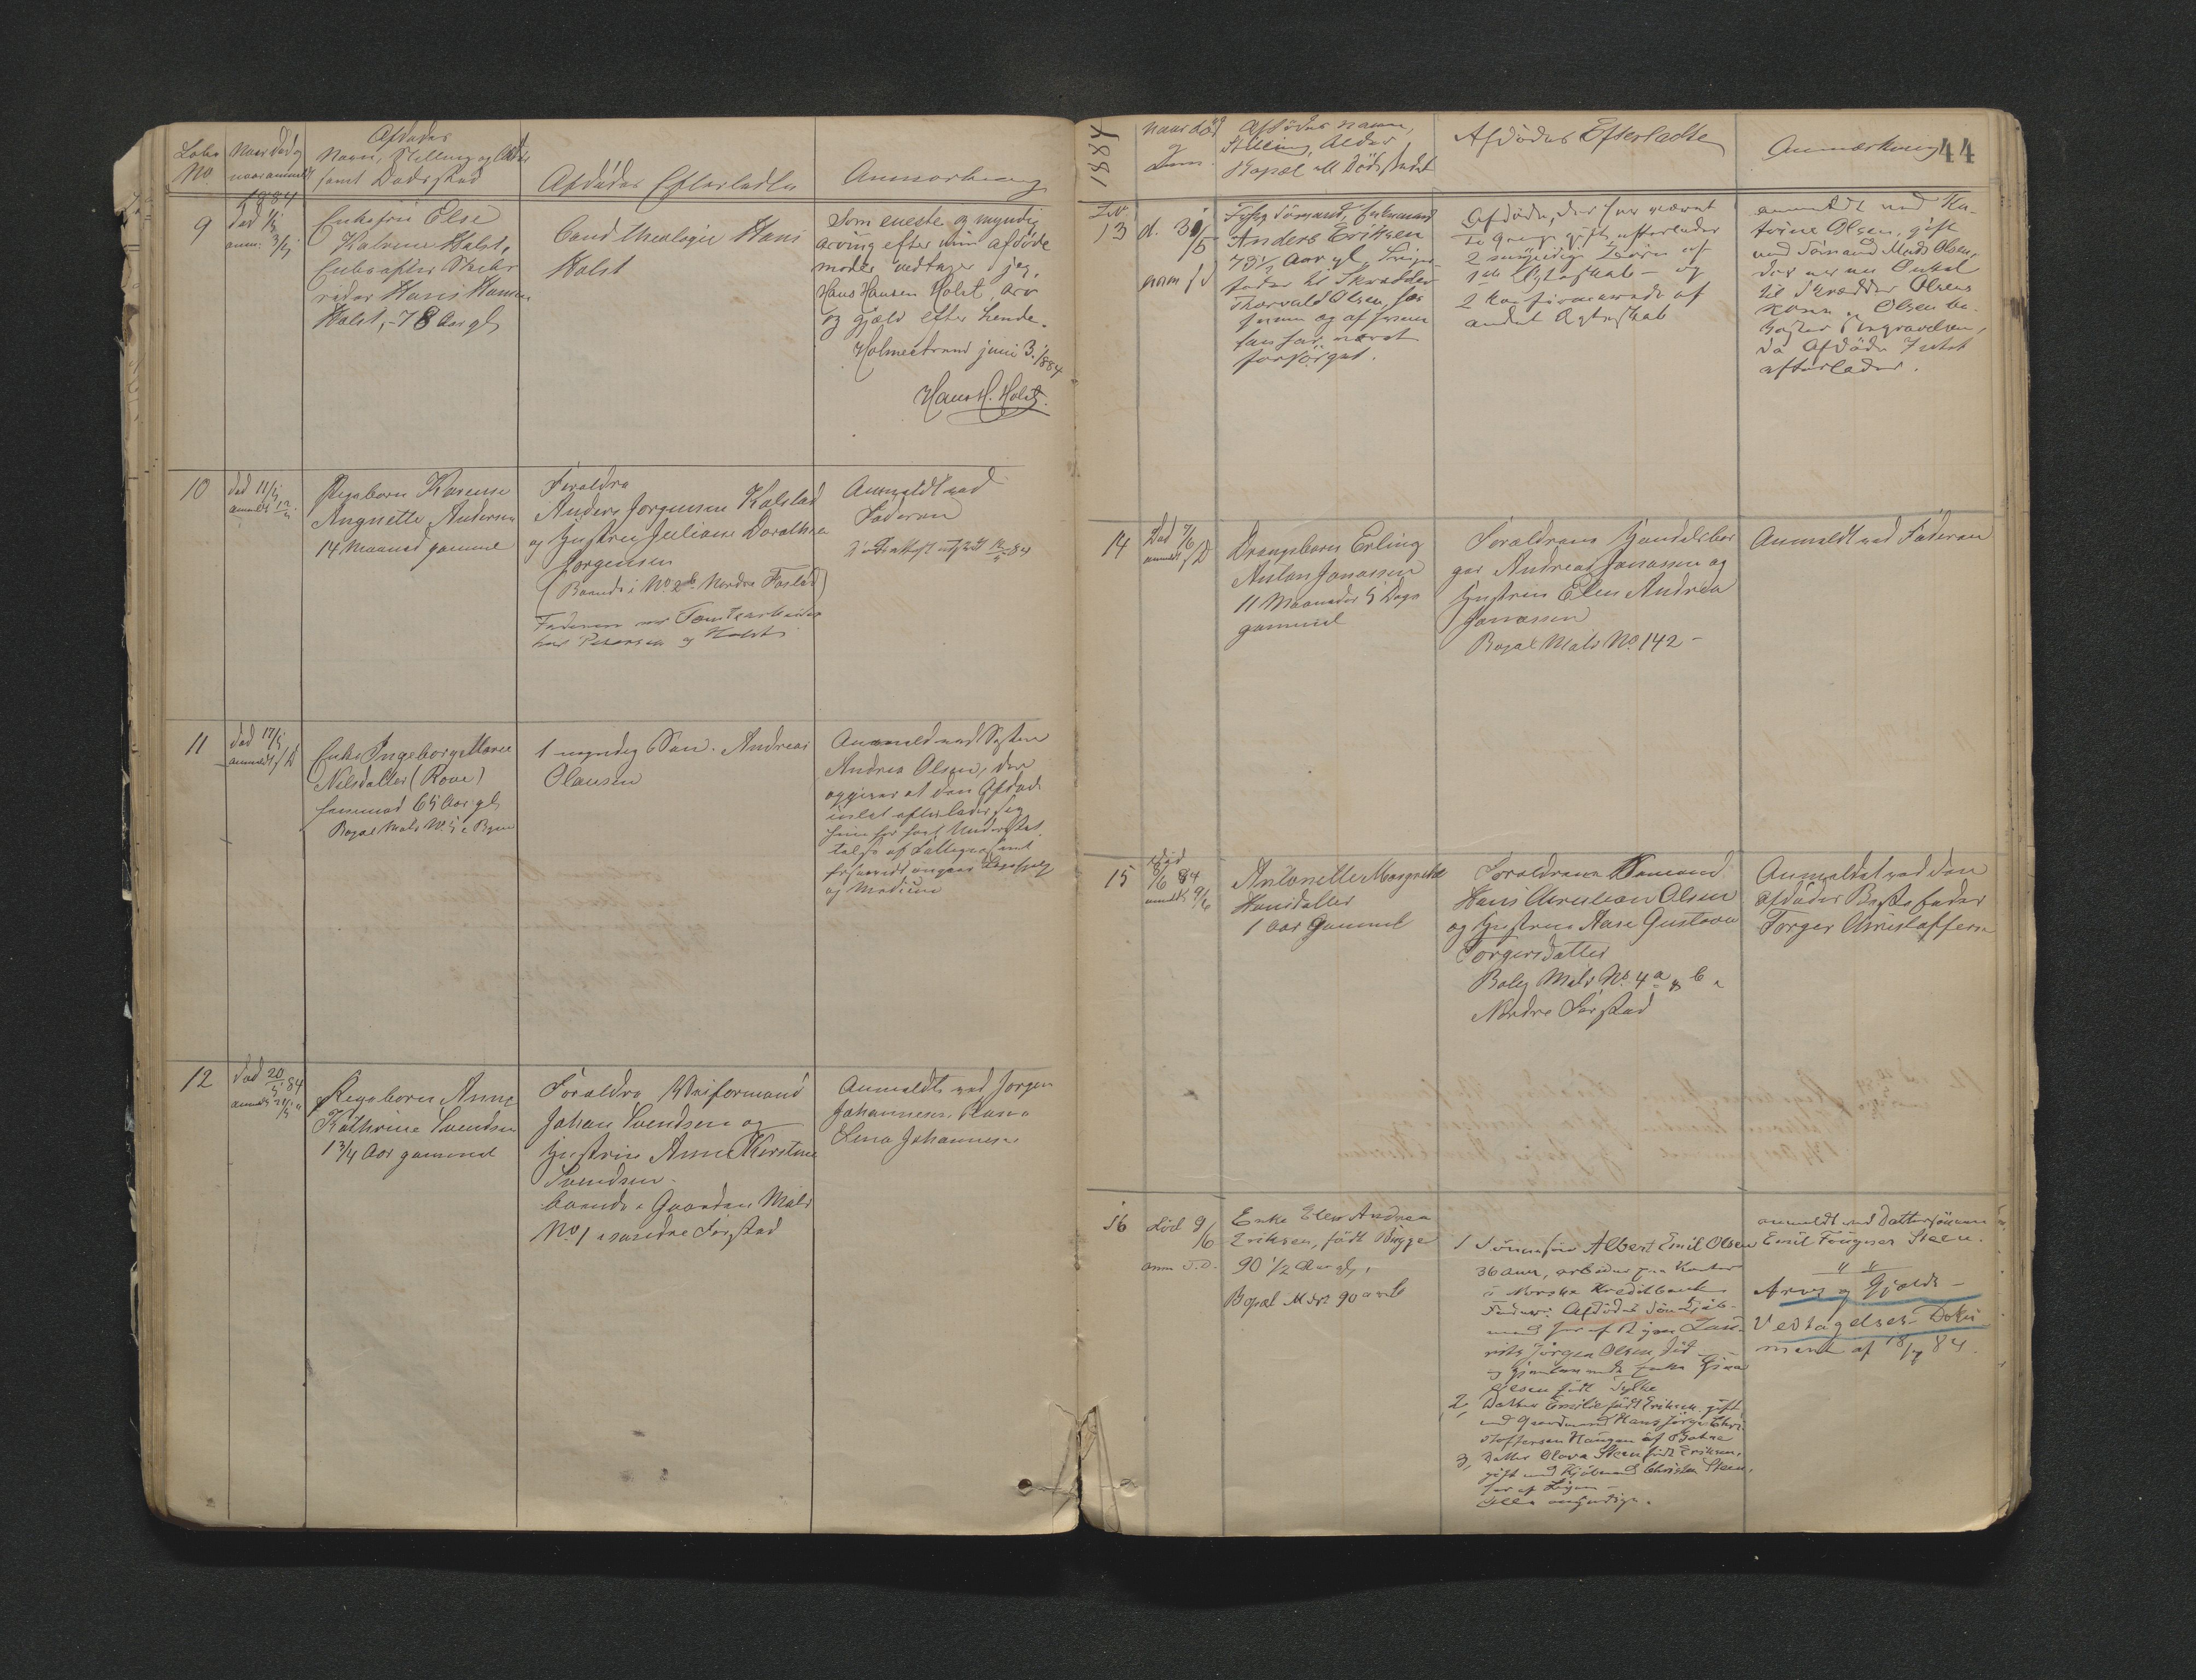 Løbe
No.
Naar død og
naar anmeldt
1884
Afdødes
Navn, Stilling og Alder
samt Dødssted
Afdødes Efterladte
Anmærkning
9
Enkefru Else
Katrine Holst,
Hans Hansen
Holst, 78 Aar gl
Cand theologie Hans
Holst
Som eneste og myndig
arving efter min afdøde
moder vedtager jeg,
Hans Hansen Holst, arv
og gjæld efter hende.
Holmestrand juni 3. 1884
Hans H. Holst.
10
død 11/5
anmeldt 12/5
Pigebarn Karense
Angnette Andersen
14 Maaned gammel
Forældre
Anders Jørgensen Kolstad
og Hustru Juliane Dorothea
Jørgensen
(Boende i No. 2b Nordre Fastad)
Faderen var Tomtearbeider
hos Petersen og Holst
Anmeldt ved
Faderen
11
død 17/5
anmeldt s D
Enke Ingeborg Marie
Nilsdatter (Rove)
65 Aar gl
Bopæl Mats No. 5 i Byen
1 myndig Søn. Andreas
Olausen
Anmeldt ved Søsteren
Andrea Olsen, der
opgiver at den Afdøde
intet efterlader sig
af Fattigvæsenet
og Medicin
12
død 20/5 84
Pigebarn Anne
Kathrine Svendsen
1 3/4 Aar gammel
Forældre
Johan Svendsen og
Hustru Anne Kirstine
Svendsen
boende i Gaarden Mats
No. 1 i søndre Fastad
Anmeldt ved Jørgen
Johannesens Kone
Lina Johannesen
1884
Naar død
og
anm.
Afdødes navn,
Stilling, Alder
Bopæl ell Dødsstedet
Afdødes Efterladte
Anmærkning
44
13
d. 31/5
anm s d
Sømand, Enkemand
Anders Eriksen
73 1/2 Aar gl, Svigerfader
til Skrædder
Thorvald Olsen, hos
hvem og af hvem
han har været
forsørget.
Afdøde, der har været
to Gange gift, efterlader
2 myndige Børn af
1ste Ægteskab - og
2 konfirmerede af
andet Ægteskab
anmeldt ved Ka-
trine Olsen, gift
med Sømand Mads Olsen,
der er en Onkel
til Skrædder Olsens
Kone. Olsen be-
koster Begravelsen,
da Afdøde Intet
efterlader.
14
Død 7/6
anmeldt s D
Drengebarn Erling
Anton Jonassen
11 Maaneder 5 Dage
gammel
Forældrene Handelsbor
ger Andreas Jonassen og
Hustru Elen Andrea
Jonassen
Bopæl Mats No. 142 -
Anmeldt ved Faderen
15
død
8/6 84
anmeldt 9/6
Antonette Margrethe
Hansdatter
1 Aar gammel
Forældrene Sømand
Hans Christian Olsen
og Hustru Aase Gustava
Torgersdatter
Bolig Mats No. 4a & b i
Nordre Fastad
Anmeldet ved den
afdødes Bestefader
Torger Christoffersen
16
død 9/6
anm S.D.
Enke Elen Andrea
Eriksen, født Brygge
90 1/2 Aar gl,
Bopæl M No 90 a & b
1 Sønnesøn Albert Emil Olsen
36 aar, arbeider paa Kontor
i Norske Kreditbank
Faderen: Afdødes Søn Kjøb-
mand her af Byen
Jørgen Olsen, død
og gjenlevende Enke Gina
Olsen født Sylke
2, Datter Emilie født Eriksen gift
med Gaardmand Hans Jørgen Chri-
stoffersen Haugen af Botne
3, Datter Olava Steen født Eriksen,
gift med Kjøbmand Christen Steen,
her af Byen -
alle myndige.
anmeldt ved Dattersønnen
Emil Fougner Steen.
" "
Arvs og Gjælds-
Vedtagelses-Doku
ment af 18/7 84.